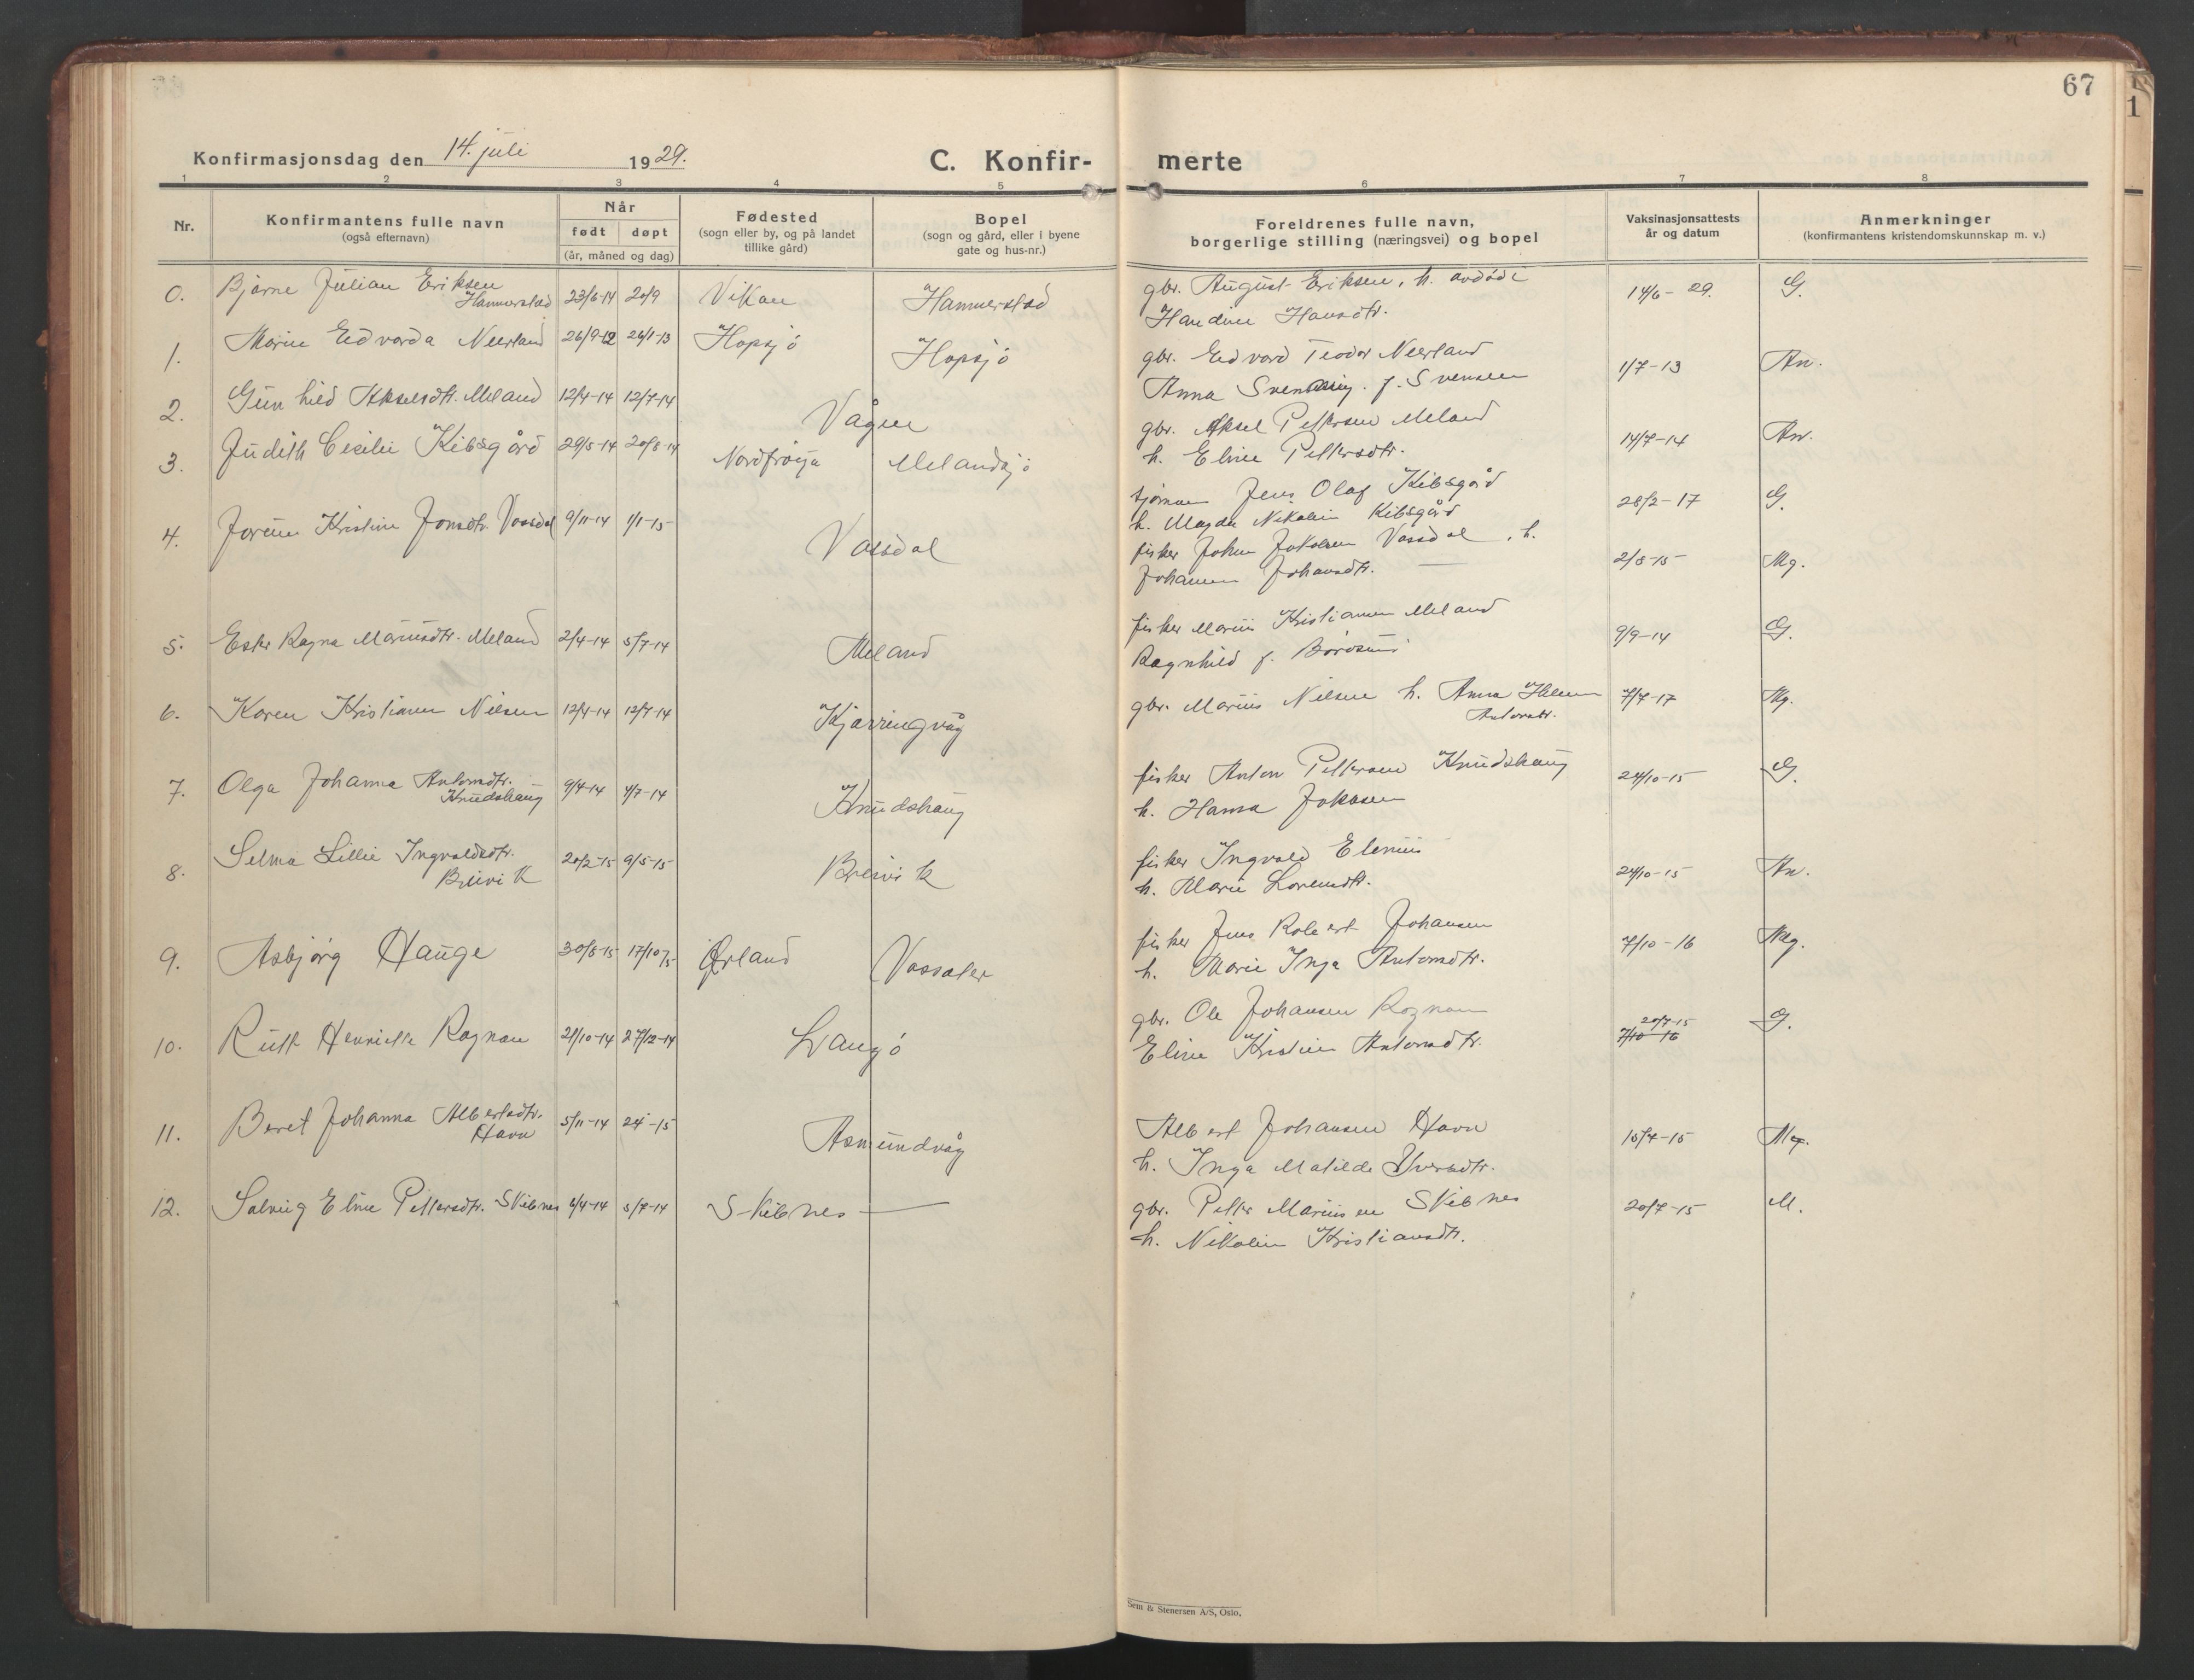 67
1
Konfirmasjonsdag den 14. juli 1929.
C. Konfir- merte
1 2 3 4 5 6 7 8
Nr.
Konfirmantens fulle navn
(også efternavn)
Når
født døpt
(år, måned og dag)
Fødested
(sogn eller by, og på landet
tillike gård)
Bopel
(sogn og gård, eller i byene
gate og hus-nr.)
Foreldrenes fulle navn,
borgerlige stilling (næringsvei) og bopel
Vaksinasjonsattests
år og datum
Anmerkninger
(konfirmantens kristendomskunnskap m. v.)
0. Bjarne Julian Eriksen
Hammerstad 23/6-14 20/9 Vikan Hammerstad
gbr. August Eriksen, h. avdøde
Handine Hansdtr.
14/6-29. G.
1. Marie Edvarda Neerland 26/9-12 26/1-13 Hopsjö Hopsjö
gbr. Edvard Teodor Neerland
Anna f. Svensen
1/7-13 An.
2. Gunhild Akselsdtr. Meland 12/4-14 12/7-14 Vågen
gbr. Aksel Pettersen Meland
h. Eline Pettersdtr.
14/7-14 An.
3. Judith Cecilie Kibsgård 29/5-14 20/8-14 Nordfröya Melandsjö
sjöman Jens Olaf Kibsgård
h. Magda Nikolin Kibsgård
28/2-17 G.
4. Jorunn Kristine Jonsdtr. Vassdal 9/11-14 1/1-15 Vassdal
fisker Johan Jakobsen Vassdal, h.
Johanna Johansdtr.
2/8-15 Mg.
5. Ester Ragna Mariusdtr. Meland 2/4-14 5/7-14 Meland
fisker Marius Kristiansen Meland
Ragnhild f. Börösund
9/9-14 G.
6. Karen Kristianne Nilsen 12/4-14 12/7-14 Kjærringvåg
gbr. Marius Nilsen h. Anna Helene
Antonsdtr.
7/7-17 Mg.
7. Olga Johanna Antonsdtr.
Knudshaug 9/4-14 4/7-14 Knudshaug
fisker Anton Pettersen Knudshaug
h. Hanna Jakobsen
24/10-15 G.
8. Selma Lillie Ingvaldsdtr.
Breivik 20/2-15 9/5-15 Breivik
fisker Ingvald Elenius
h. Marie Lorensdtr.
24/10-15 An.
9. Asbjörg Hauge 30/8-15 17/10/15 Ørland Vassater
fisker Jens Robert Johansen
h. Marie Inga Antonsdtr.
7/10-16 Mg.
10. Ruth Henriette Rognan 21/10-14 27/12-14 Langö
gbr. Ole Johansen Rognan
Eline Kristine Antonsdtr.
20/7-15
7/10-16 G.
11. Beret Johanna Albertsdtr.
Havn 5/11-14 24-15 Asmundvåg
Albert Johansen Havn
h. Inga Matilde Iversdtr.
15/7-15 Mg.
12. Solveig Eline Pettersdtr. Skibnes 6/4-14 5/7-14 Skibnes
gbr. Petter Mariusen Skibnes
h. Nikolin Kristiansdtr.
20/7-15 M.
Sem & Stenersen A/S, Oslo.